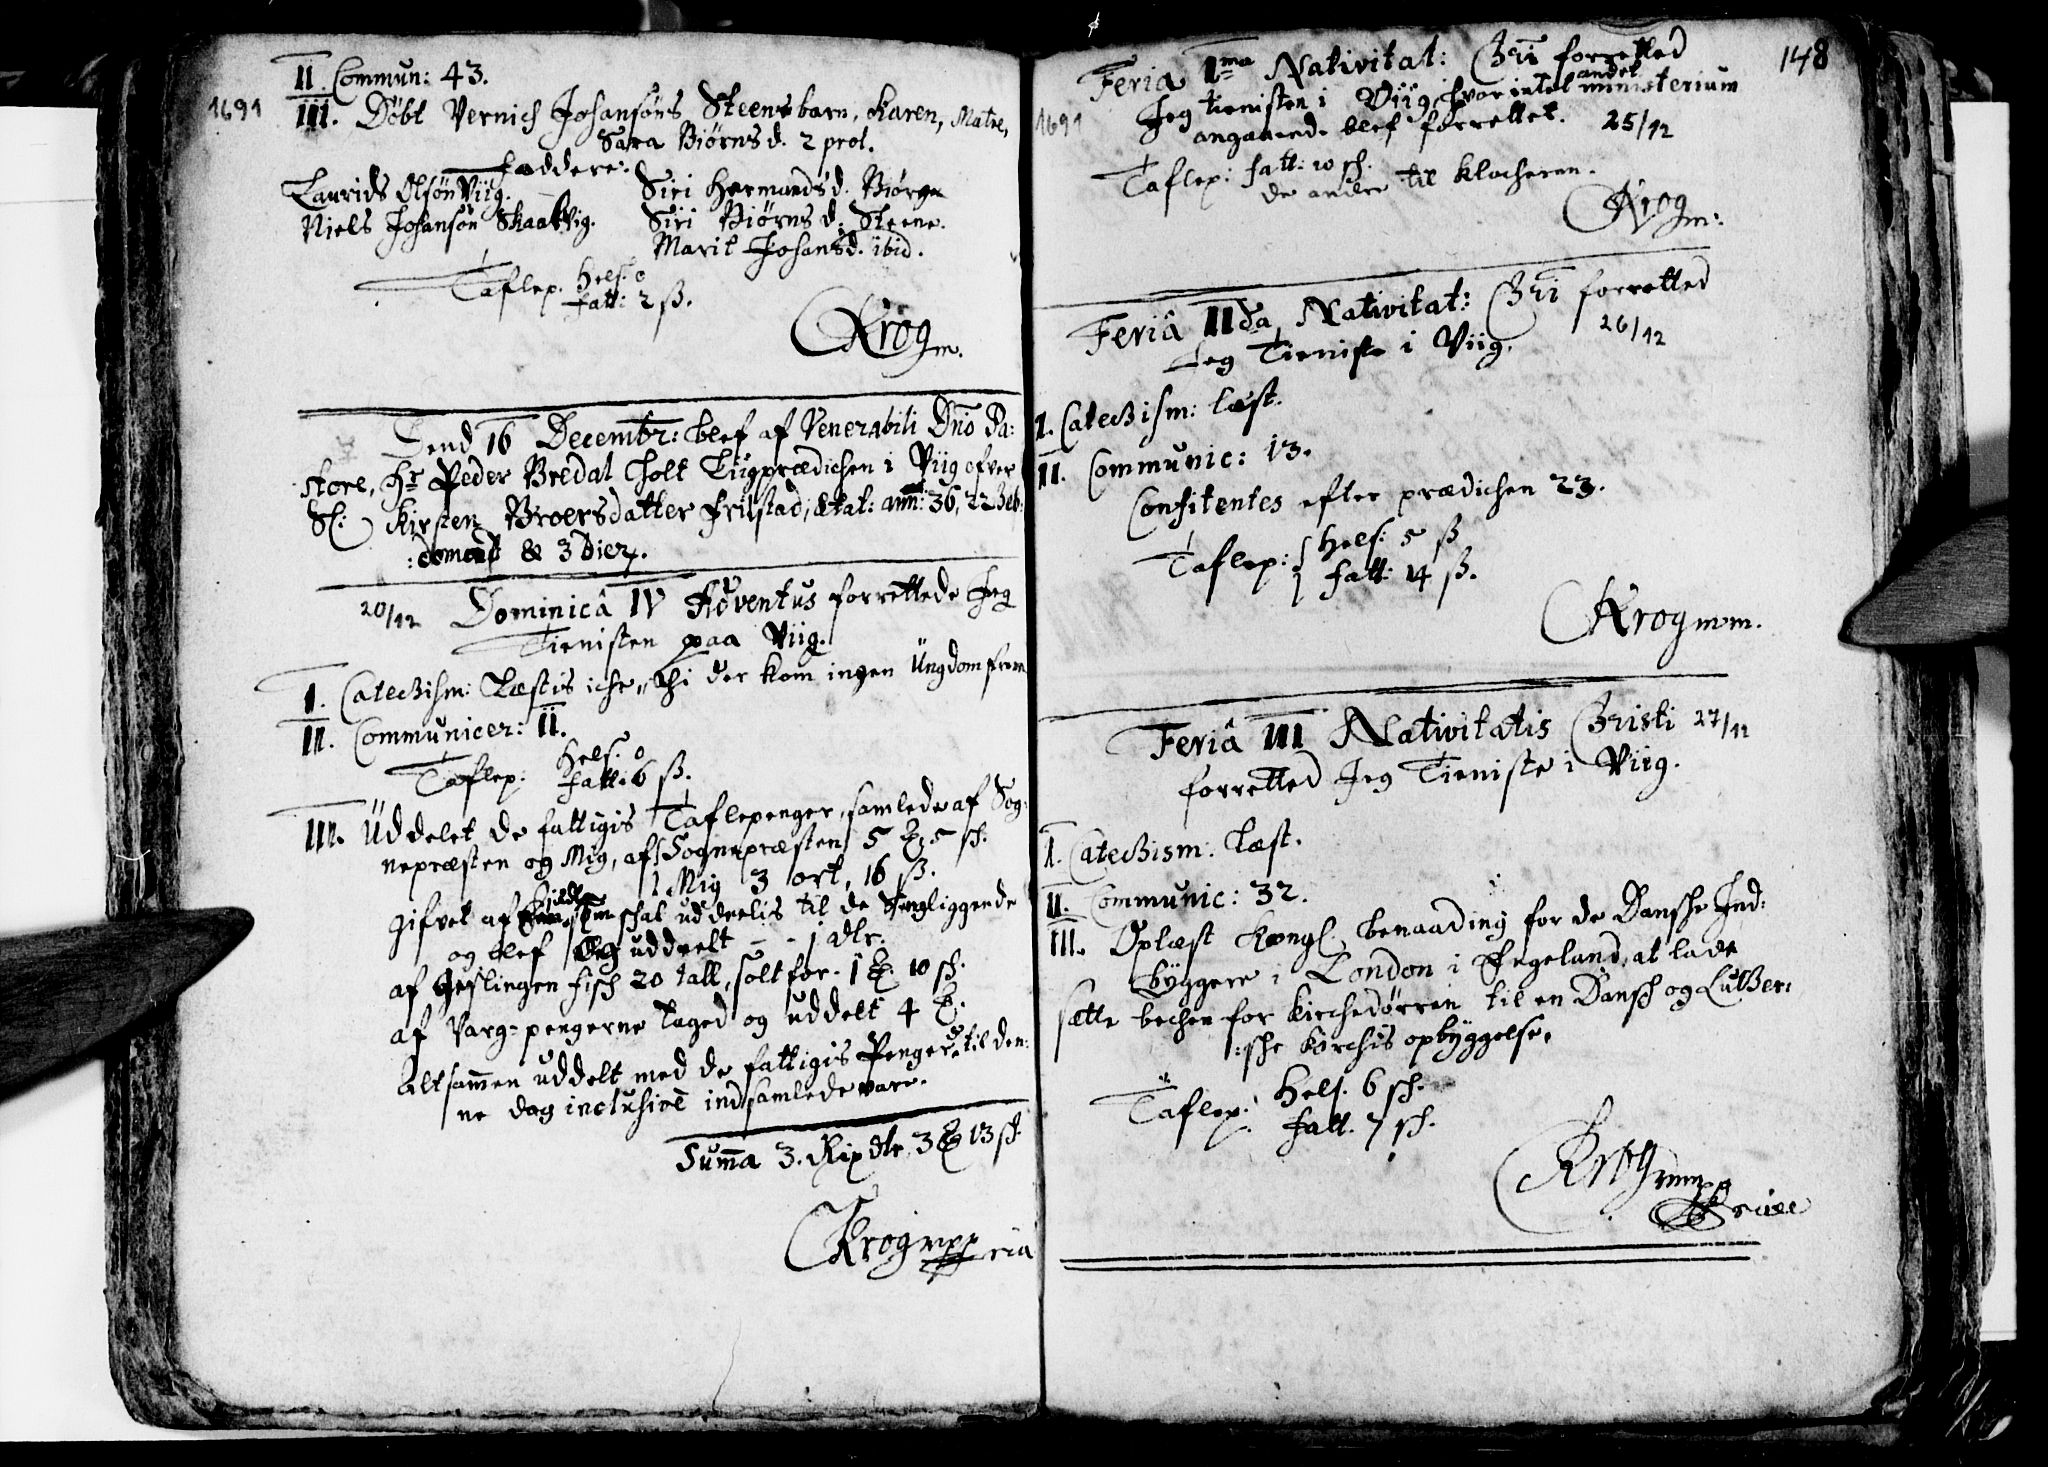 II Commun: 43.
1691
III. Døbt Vernich Johansøns Steens barn, Karen, Matre,
Sara Biørnsd. 2 prol.
Faddere:
Laurids Olsøn Viig.
Siri Hermandsd. Biørge
Niels Johansøn Skaatvig.
Siri Biørnsd: Steene.
Marit Johansd. ibid.
Taflep. Hels. 0
fatt: 2 ß.
Krog m.
Dend 16 Decembr: blef af Venerabili Dno Pa:
store, Hr Peder Bredal holt Liigprædichen i Viig ofver
Sl: Kirsten Broersdatter Friistad, ætat: ann: 36, 22 Heb:
:domad & 3 dier.
20/12 Dominicâ IV Adventus forrettede Jeg
Tienisten paa Viig.
I. Catechism: Læstis iche, thi der kom ingen Ungdom frem
II. Communicer: II.
Taflep: Hels. 0
fatt: 6 ß.
III. Uddelet de fattigis Taflepenger, samlede af Sog:
nepræsten og Mig, af Sognepræsten 5 ℔ 5 sh.
Mig 3 ort, 16 ß.
gifvet af som schal uddeelis til de Sengliggende
og blef uddeelt - - 1 dlr.
af Geslingen fisch 20 tall, solt for. 1 ℔. 10 sh.
af Varg-pengerne taged og uddelt 4 ℔.
Altsammen uddelt med de fattigis Penger til den:
ne dag inclusivè indsamlede vare.
Summa 3. Rix dlr 3 ℔ 13 sh.
Krog mpp ria
148
Feria 1ma Nativitat: Chri forretted
1691
andet
Jeg tienisten i Viig, hvor intet ministerium
angaaend. blef forrettet. 25/12
Taflep: fatt: 10 sh.
de andre til Klocheren.
Krog m:
Feriâ IIda Nativitat: Chri forretted
26/12
Jeg Tieniste i Viig.
I. Catechism: læst.
II. Communic: 13.
Confitentes efter prædichen 23.
Taflep: Hels: 5 ß
fatt: 14 ß.
Krog mm.
Feriâ III Nativitatis Christi 27/12
forretted Jeg Tieniste i Viig.
I. Catechism: Læst.
II. Communic: 32.
III. Oplæst Kongl. benaading for de Dansche Ind:
byggere i London i Engeland, at lade
sætte bechen for Kirchedørren til en Dansch og Luther:
:sche Kirchis opbyggelse.
Taflep: Hels. 6 sh.
fatt. 7 sh.
Krog mmpp